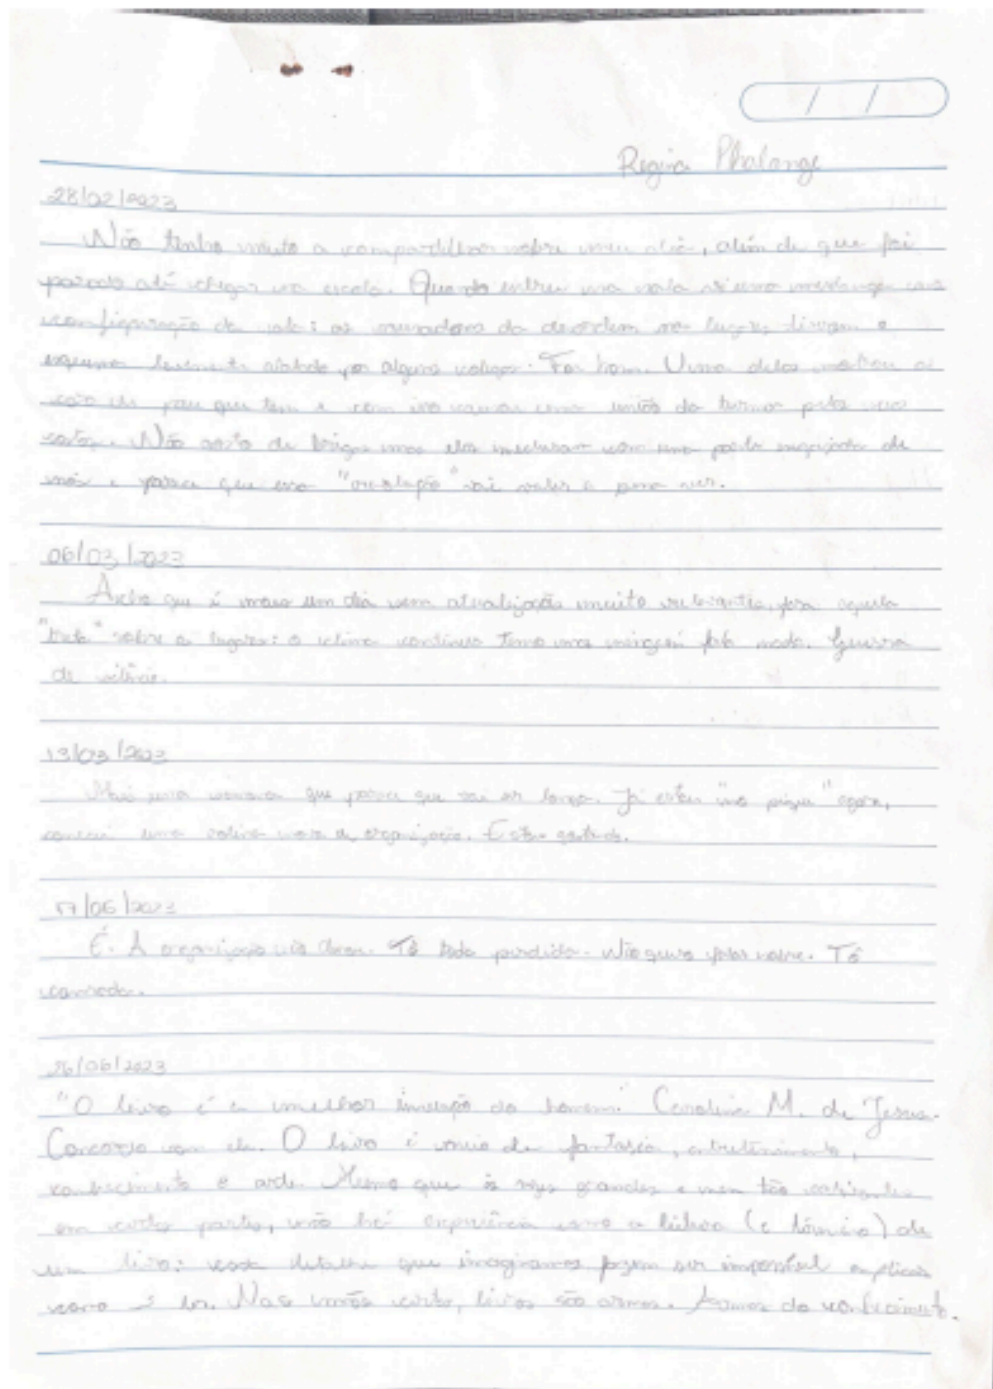 Regina Phalange
28/02/2023
Não tenho muito a compartilhar sobre meu dia, além de que foi
até chegar na escola. Quando entrei na sala vi uma mudança na
configuração da sala: os da desordem no lugar, tiveram o
esquema levemente por alguns colegas. Foi bom. Uma delas mostrou a
cara de pau que tem e com isso causou uma união da turma pela
certa. Não gosto de brigas mas elas mexeram com uma parte de
nós e parece que essa "revolução" vai valer a pena ver.
06/03/2023
Acho que é mais um dia sem atualização muito relevante, fora aquela
"treta" sobre o lugares: o clima continua tenso mas ninguém fala nada. Guerra
de
13/03/2023
Mais uma semana que parece que vai ser longa. Já estou "no pique" agora,
comecei uma rotina nova de organização. Estou gostando.
17/06/2023
É. A organização não durou. Tô toda perdida. Não quero falar sobre. Tô
cansada.
26/06/2023
"O livro é a melhor invenção do homem." Carolina M. de Jesus.
Concordo com ela. O livro é de fantasia, entretenimento,
conhecimento e arte. Mesmo que às vezes grandes e nem tão
em certas partes, não há experiência como a leitura (e ) de
um livro: cada detalhe que imaginamos fazem ser impossível explicar
como é ler. Nas mãos certas, livros são armas. Armas do conhecimento.